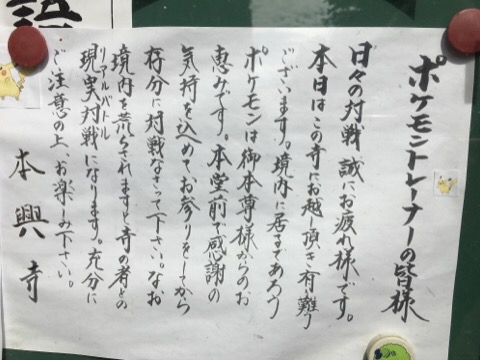 ポケモントレーナーの皆様
日々の対戦誠にお疲れ様です。
本日はこの寺にお越し頂き有難う
ございます。境内に居るであろう
ポケモンは御本尊様からのお
恵みです。本堂前で感謝の
気持を込めてお参りをしてから
存分に対戦なさって下さい。なお
境内を荒らされますと寺の者との
リアルバトル
現実対戦になります。充分に
ご注意の上、お楽しみ下さい。
本興寺